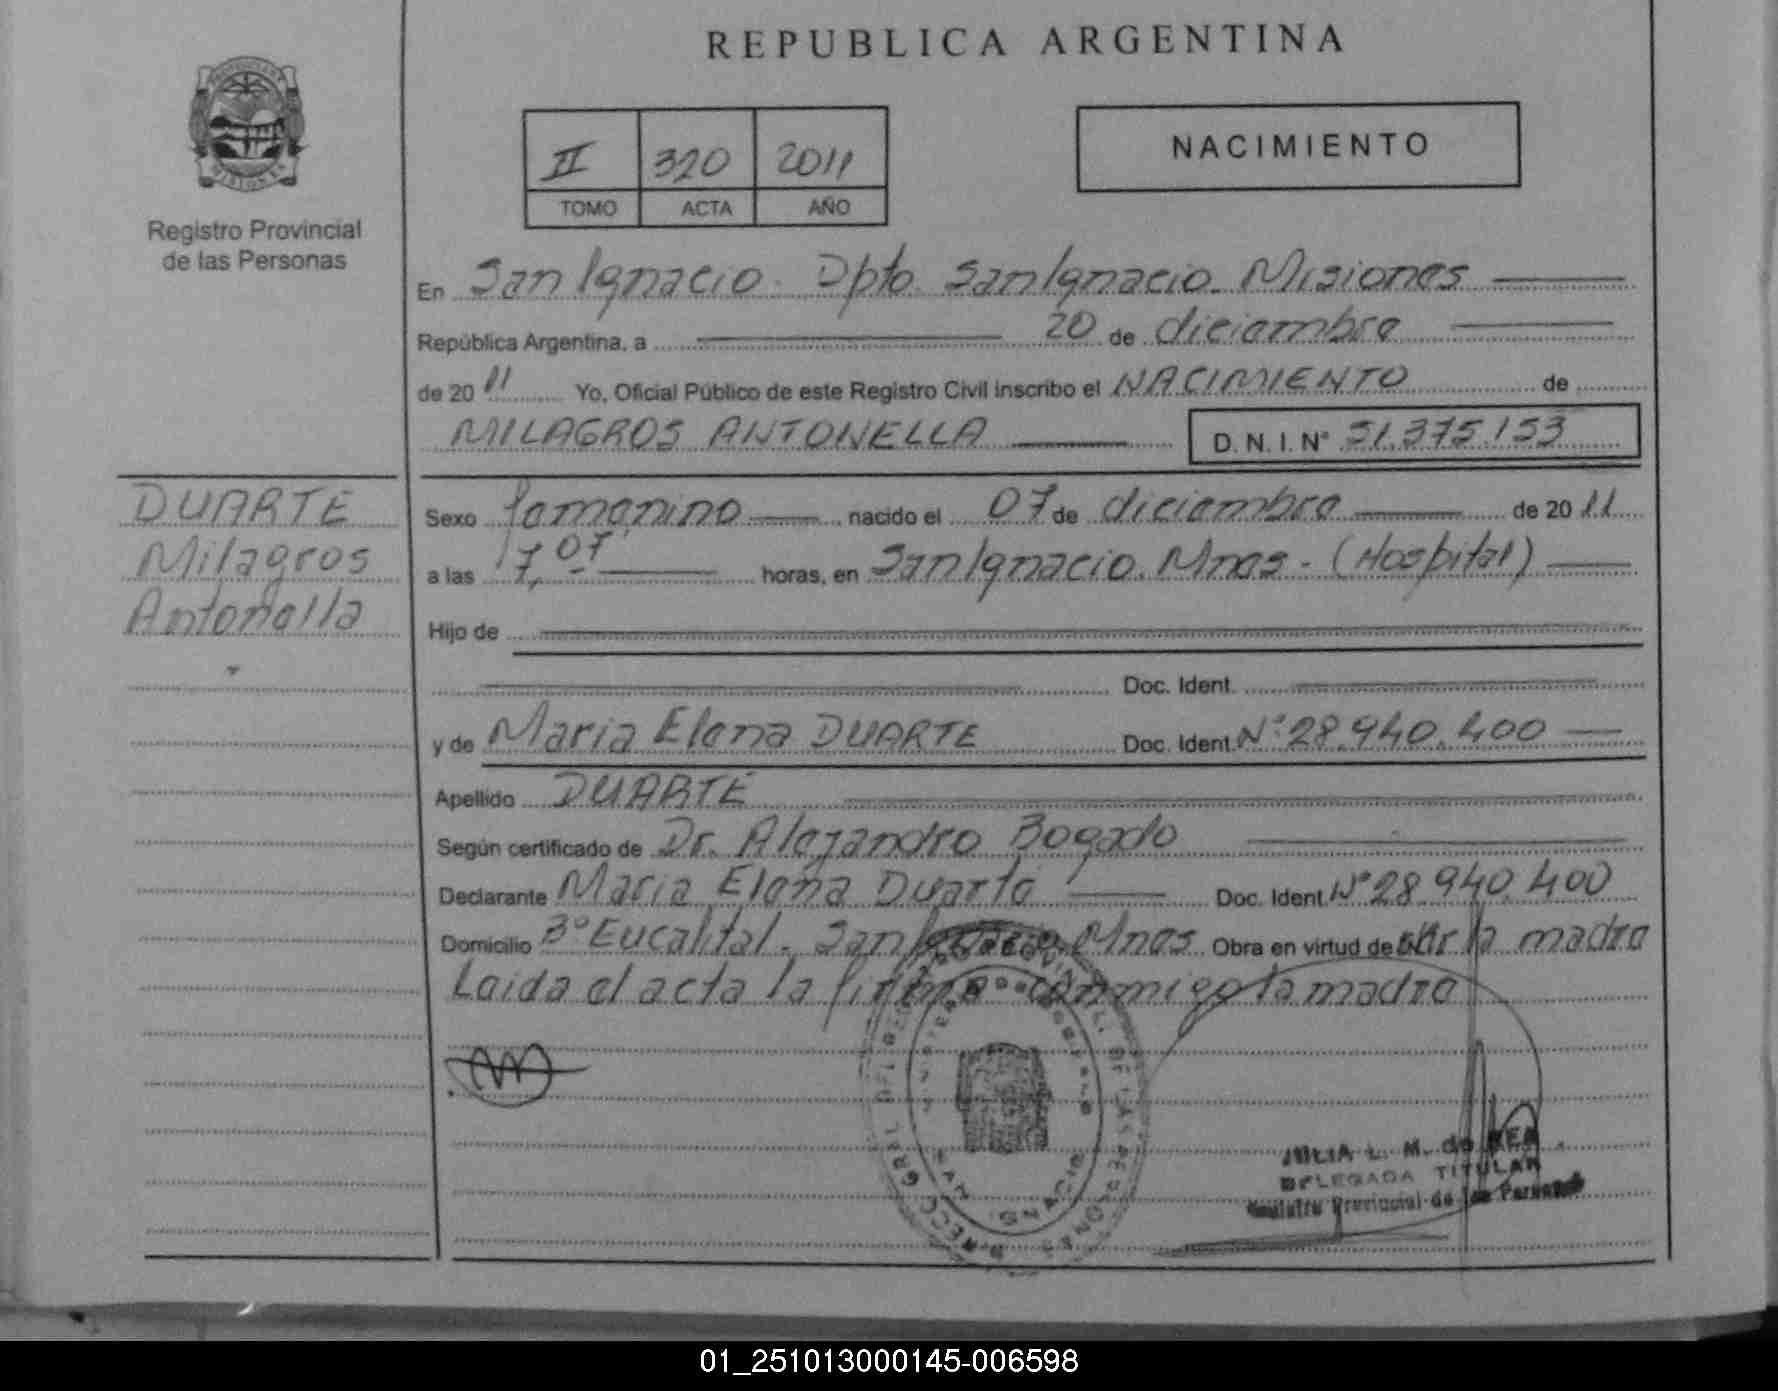 REPUBLICA ARGENTINA
MISIONES
Registro Provincial
de las Personas
II 320 2011
TOMO ACTA AÑO
NACIMIENTO
En San Ignacio. Dpto. San Ignacio. Misiones
República Argentina, a 20 de diciembre
de 20 11 Yo, Oficial Público de este Registro Civil inscribo el NACIMIENTO de
MILAGROS ANTONELLA D. N. I. N° 51.375.153
DUARTE
Milagros
Antonella
Sexo femenino nacido el 07 de diciembre de 20 11
a las 17,07 horas, en San Ignacio. Mnes. - (Hospital)
Hijo de
Doc. Ident.
y de Maria Elena DUARTE Doc. Ident. N° 28.940.400
Apellido DUARTE
Según certificado de Dr. Alejandro Bogado
Declarante Maria Elena Duarte Doc. Ident. N° 28.940.400
Domicilio B° Eucaliptal. San Ignacio Mnes. Obra en virtud de ser la madre
Leida el acta la firma conmigo la madre
JULIA L. M. de
DELEGADA TITULAR
Registro Provincial de las Personas
01_251013000145-006598